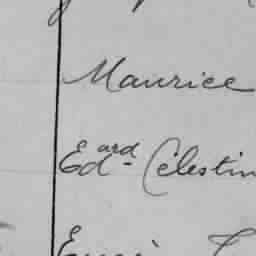 Maurice
Ed^ard Célestin